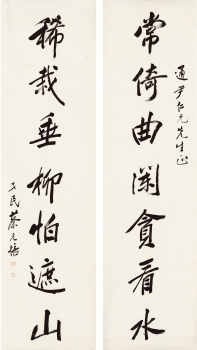 通尹仁兄先生正
常倚曲闌貪看水
稀栽垂柳怕遮山
孑民蔡元培